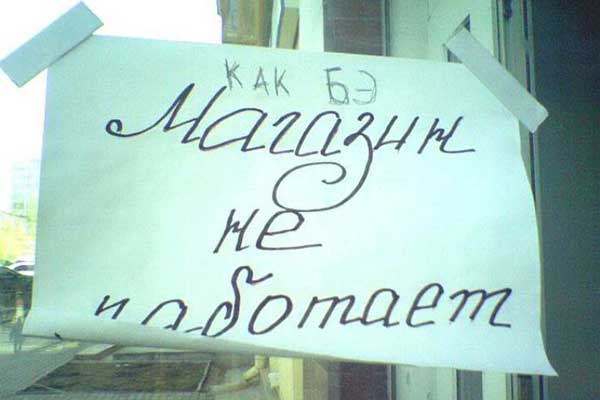 КАК БЭ
Магазин
не
работает